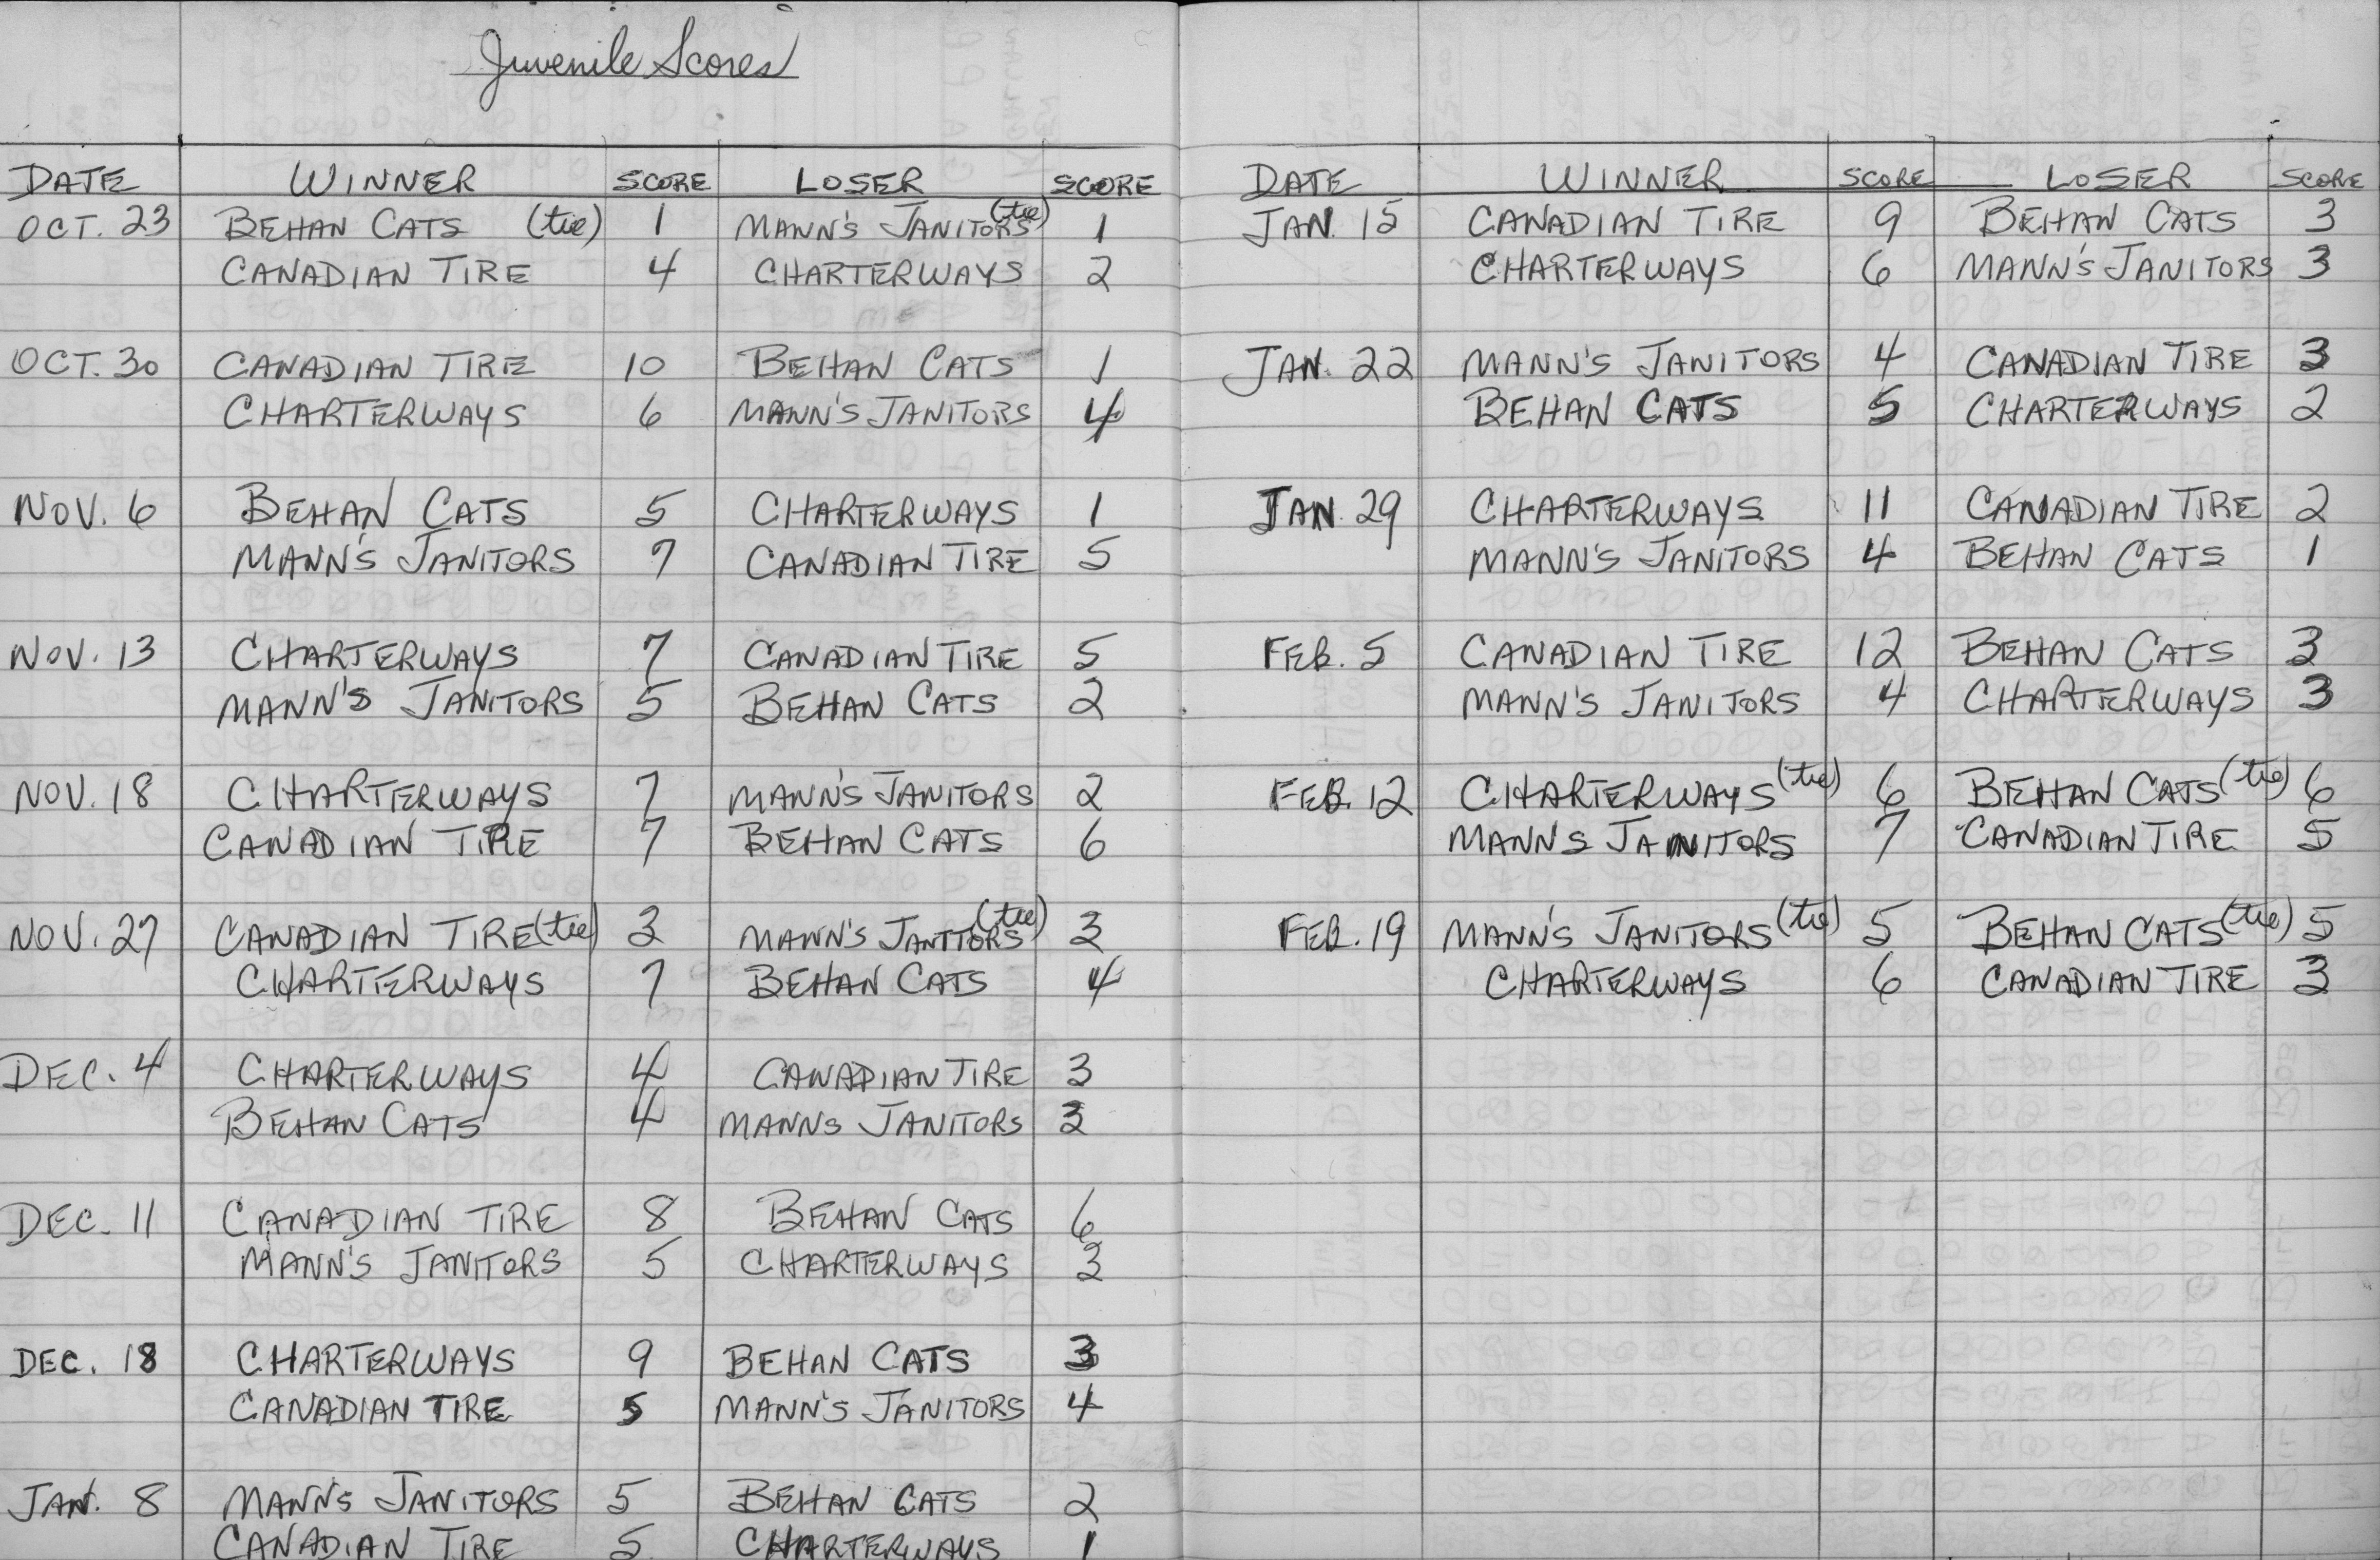 Juvenile Scores
DATE WINNER SCORE LOSER SCORE
OCT. 23 BEHAN CATS (tie) 1 MANN'S JANITORS (tie) 1
CANADIAN TIRE 4 CHARTERWAYS 2
OCT. 30 CANADIAN TIRE 10 BEHAN CATS 1
CHARTERWAYS 6 MANN'S JANITORS 4
NOV. 6 BEHAN CATS 5 CHARTERWAYS 1
MANN'S JANITORS 7 CANADIAN TIRE 5
NOV. 13 CHARTERWAYS 7 CANADIAN TIRE 5
MANN'S JANITORS 5 BEHAN CATS 2
NOV. 18 CHARTERWAYS 7 MANN'S JANITORS 2
CANADIAN TIRE 7 BEHAN CATS 6
NOV. 27 CANADIAN TIRE (tie) 3 MANN'S JANITORS (tie) 3
CHARTERWAYS 7 BEHAN CATS 4
DEC. 4 CHARTERWAYS 4 CANADIAN TIRE 3
BEHAN CATS 4 MANNS JANITORS 3
DEC. 11 CANADIAN TIRE 8 BEHAN CATS 6
MANN'S JANITORS 5 CHARTERWAYS 3
DEC. 18 CHARTERWAYS 9 BEHAN CATS 3
CANADIAN TIRE 5 MANN'S JANITORS 4
JAN. 8 MANN'S JANITORS 5 BEHAN CATS 2
CANADIAN TIRE 5 CHARTERWAYS 1
DATE WINNER SCORE LOSER SCORE
JAN. 15 CANADIAN TIRE 9 BEHAN CATS 3
CHARTERWAYS 6 MANN'S JANITORS 3
JAN. 22 MANN'S JANITORS 4 CANADIAN TIRE 3
BEHAN CATS 5 CHARTERWAYS 2
JAN. 29 CHARTERWAYS 11 CANADIAN TIRE 2
MANN'S JANITORS 4 BEHAN CATS 1
FEB. 5 CANADIAN TIRE 12 BEHAN CATS 3
MANN'S JANITORS 4 CHARTERWAYS 3
FEB. 12 CHARTERWAYS (tie) 6 BEHAN CATS (tie) 6
MANN'S JANITORS 7 CANADIAN TIRE 5
FEB. 19 MANN'S JANITORS (tie) 5 BEHAN CATS (tie) 5
CHARTERWAYS 6 CANADIAN TIRE 3